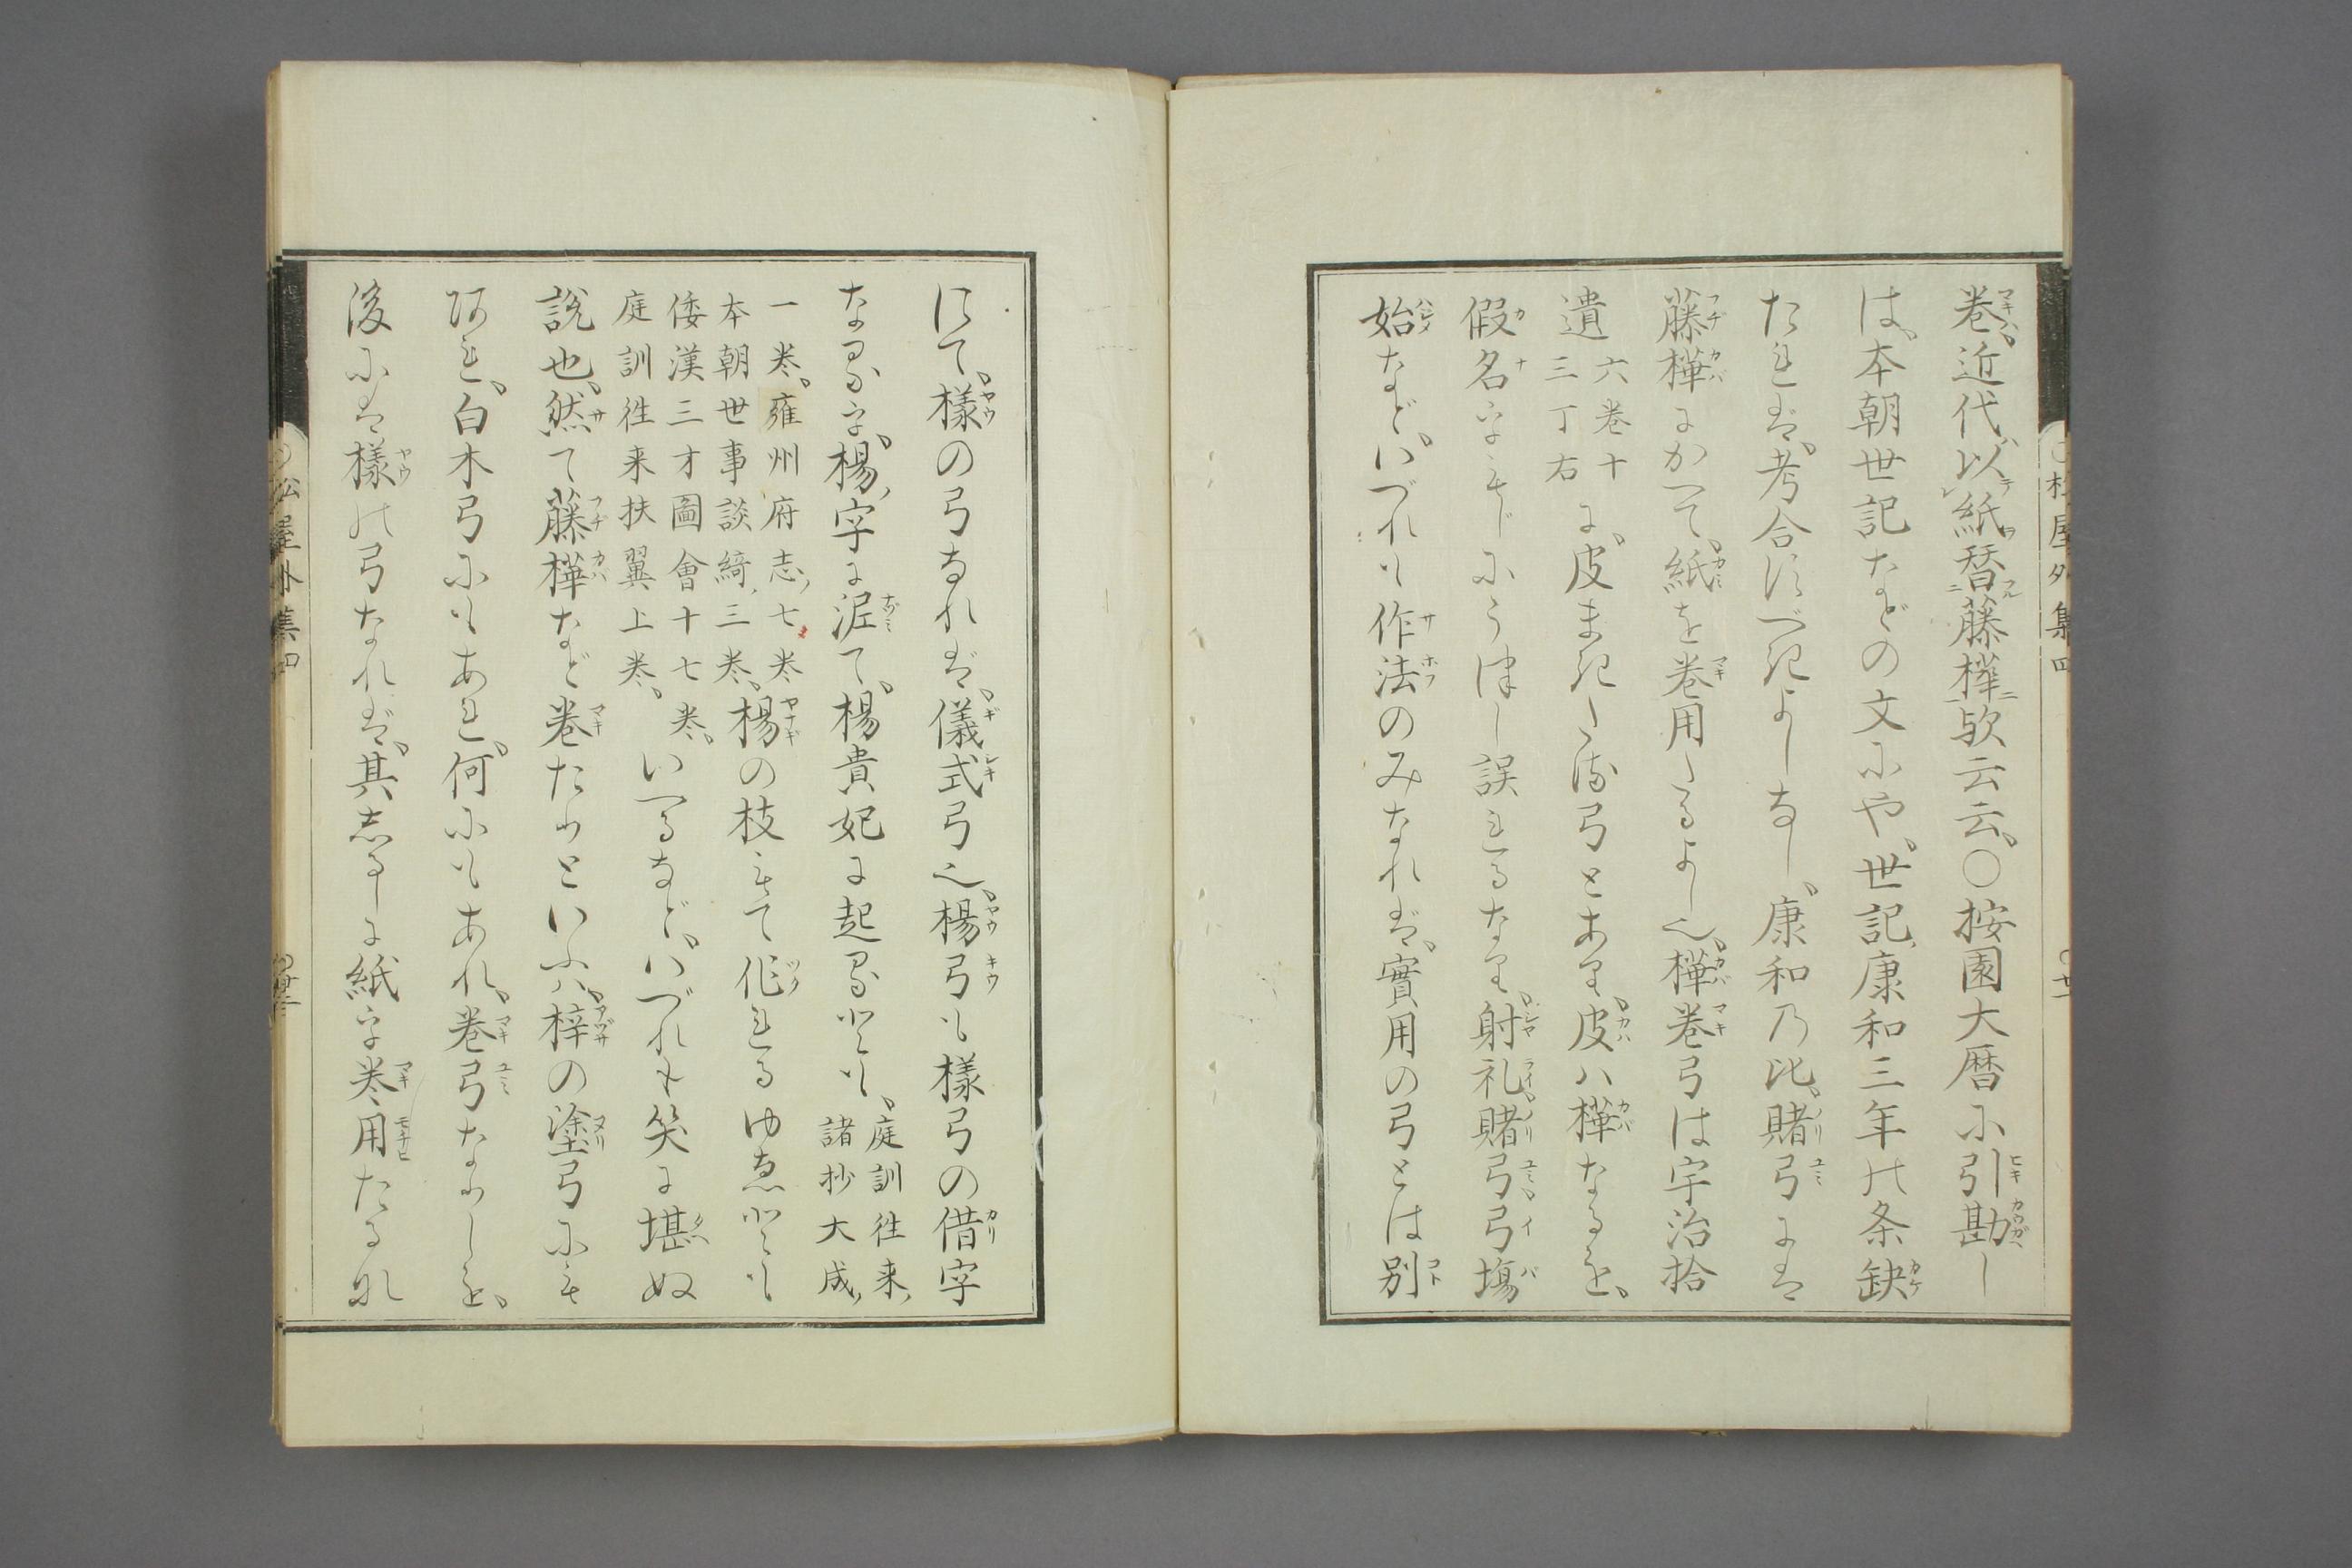 巻、近代以紙替藤樺歟云云、○按園大暦に引勘し
は、本朝世記などの文にや、世記、康和三年の条缺
たれば、考合すべきよしなし、康和乃比、賭弓には
藤樺にかへて、紙を巻用ゝるよし也、樺巻弓は宇治拾
遺六巻十三丁右に、皮まきたる弓とあり、皮ハ樺なるを、
假名字もじにうつし誤れるなり、射礼賭弓弓場
始など、いづれも作法のみなれば、實用の弓とは別
にて、様の弓なれば、儀式弓也、楊弓も様弓の借字
なるを、楊字に泥て、楊貴妃に起るといひ、庭訓往来、諸抄大成、
一巻、雍州府志、七巻、楊の枝もて作れるゆゑといひ
本朝世事談綺、三巻、
倭漢三才圖會十七巻、いへるなど、いづれも笑に堪ぬ
庭訓往来扶翼上巻、
説也、然て藤樺など巻たりといふハ、梓の塗弓にも
あれ、白木弓にもあれ、何にもあれ、巻弓なりしを、
後には様の弓なれば、其志るしに紙を巻用たるな
松屋外集四